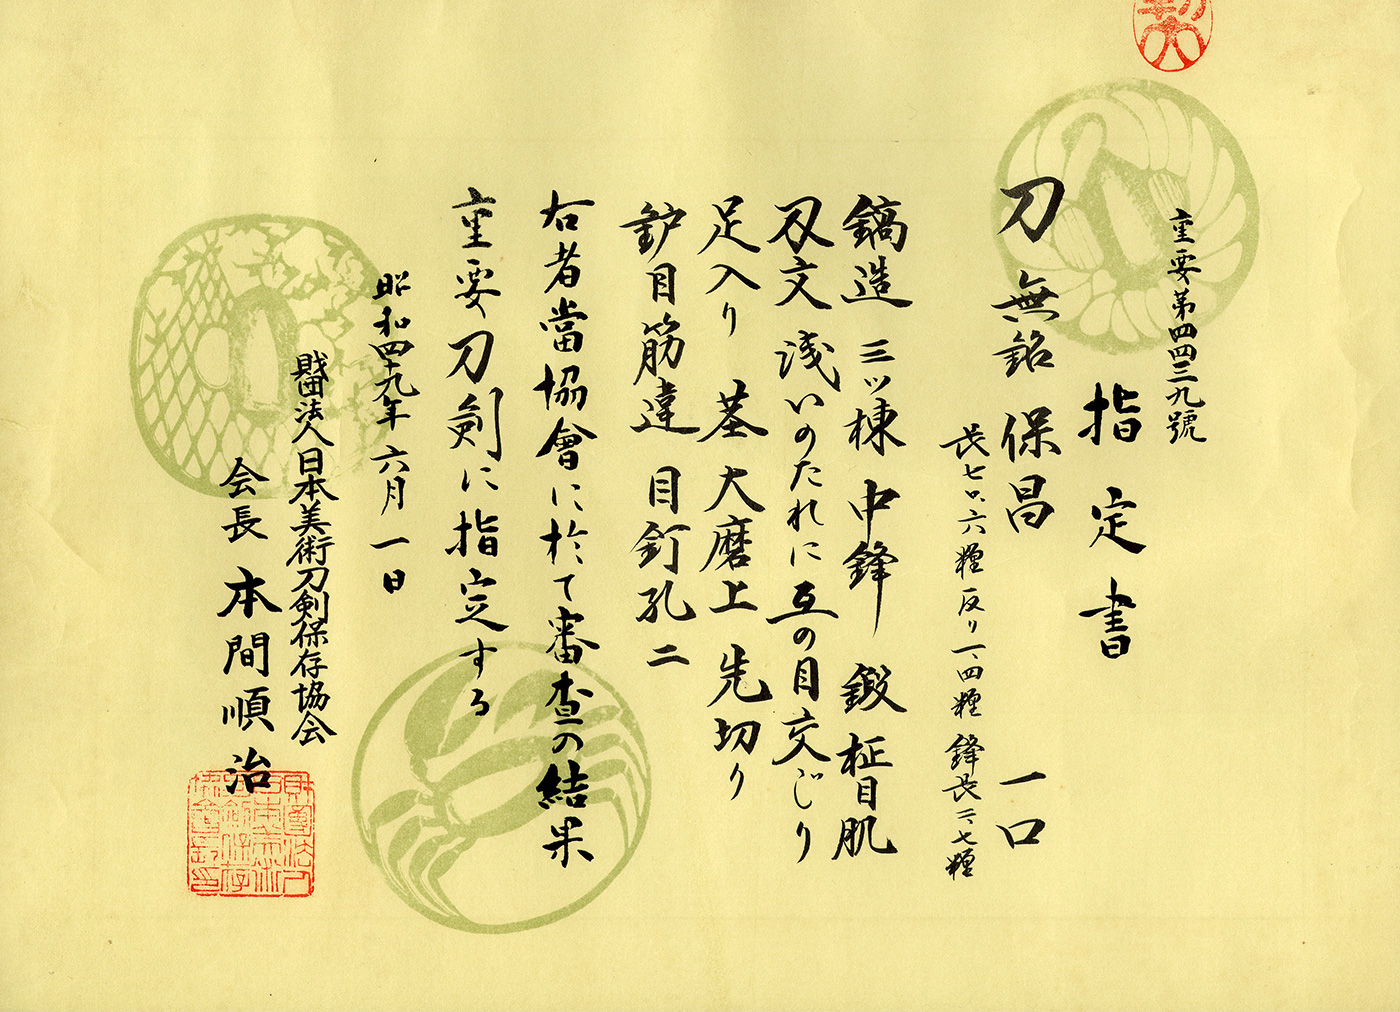 重要第四四三九號
指定書
刀 無銘 保昌 一口
長七〇、六糎 反り一、四糎 鋒長三、七糎
鎬造 三ッ棟 中鋒 鍛 柾目肌
刄文 浅いのたれに互の目交じり
足入り 茎 大磨上 先切り
鈩目筋違 目釘孔二
右者當協會に於て審査の結果
重要刀剣に指定する
昭和四十九年六月一日
財団法人日本美術刀剣保存協会
会長 本間順治